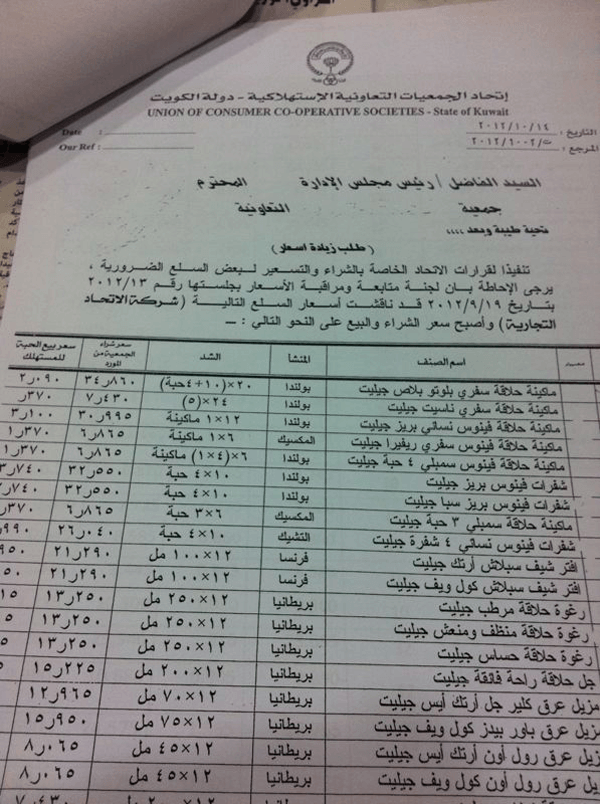 إتحاد الجمعيات التعاونية الإستهلاكية - دولة الكويت
UNION OF CONSUMER CO-OPERATIVE SOCIETIES - State of Kuwait
Date : التاريخ : ٢٠١٢/١٠/١٤
Our Ref : المرجع : ت/٢٠١٢/٦٠٠٢
السيد الفاضل / رئيس مجلس الإدارة المحترم
جمعية التعاونية
تحية طيبة وبعد ،،،،
( طلب زيادة اسعار )
تنفيذا لقرارات الاتحاد الخاصة بالشراء والتسعير لبعض السلع الضرورية ،
يرجى الإحاطة بان لجنة متابعة ومراقبة الأسعار بجلستها رقم ٢٠١٢/١٣
بتاريخ ٢٠١٢/٩/١٩ قد ناقشت أسعار السلع التالية ( شركة الاتحاد
التجارية ) وأصبح سعر الشراء والبيع على النحو التالي : ــ
اسم الصنف المنشأ الشد سعر شراء الجمعية من المورد سعر بيع الحبة للمستهلك
ماكينة حلاقة سفري بلوتو بلاص جيليت بولندا ٢٠×(١٠+٤حبة) ٣٤٫٨٦٠ ٢٫٠٩٠
ماكينة حلاقة سفري ناسيت جيليت بولندا ٢٤×(٥) ٧٫٤٣٠ ٣٧٠ر
ماكينة حلاقة فينوس نسائي بريز جيليت بولندا ١٢×١ ماكينة ٣٠٫٩٩٥ ٣٫١٠٠
ماكينة حلاقة فينوس سفري ريفيرا جيليت المكسيك ٦×١ ماكينة ٦٫٨٦٥ ١٫٣٧٠
ماكينة حلاقة فينوس سمبلي ٤ حبة جيليت بولندا ٦×(٤×١) ماكينة ٦٫٨٦٥ ١٫٣٧٠
شفرات فينوس بريز جيليت بولندا ١٠×٤ حبة ٣٢٫٥٥٠ ٣٫٧٤٠
شفرات فينوس بريز سبا جيليت بولندا ١٠×٤ حبة ٣٢٫٥٥٠ ٧٤٠
ماكينة حلاقة سمبلي ٣ حبة جيليت المكسيك ٦×٣ حبة ٦٫٨٦٥ ٣٧٠
شفرات فينوس نسائي ٤ شفرة جيليت التشيك ١٠×٤ حبة ٢٦٫٠٤٠ ٩٩٠
افتر شيف سبلاش أرتك جيليت فرنسا ١٢×١٠٠ مل ٢١٫٢٩٠ ٩٥٠
افتر شيف سبلاش كول ويف جيليت فرنسا ١٢×١٠٠ مل ٢١٫٢٩٠
رغوة حلاقة مرطب جيليت بريطانيا ١٢×٢٥٠ مل ١٣٫٢٥٠
رغوة حلاقة منظف ومنعش جيليت بريطانيا ١٢×٢٥٠ مل ١٣٫٢٥٠
رغوة حلاقة حساس جيليت بريطانيا ١٢×٢٥٠ مل ١٣٫٢٥٠
جل حلاقة راحة فائقة جيليت بريطانيا ١٢×٢٠٠ مل ١٥٫٢٢٥
مزيل عرق كلير جل أرتك أيس جيليت بريطانيا ١٢×٧٠ مل ١٢٫٩٦٥
مزيل عرق باور بيدز كول ويف جيليت بريطانيا ١٢×٧٥ مل ١٥٫٩٥٠
مزيل عرق رول أون أرتك أيس جيليت بريطانيا ١٢×٤٥ مل ٨٫٠٦٥
يل عرق رول أون كول ويف جيليت بريطانيا ١٢×٤٥ مل ٨٫٠٦٥